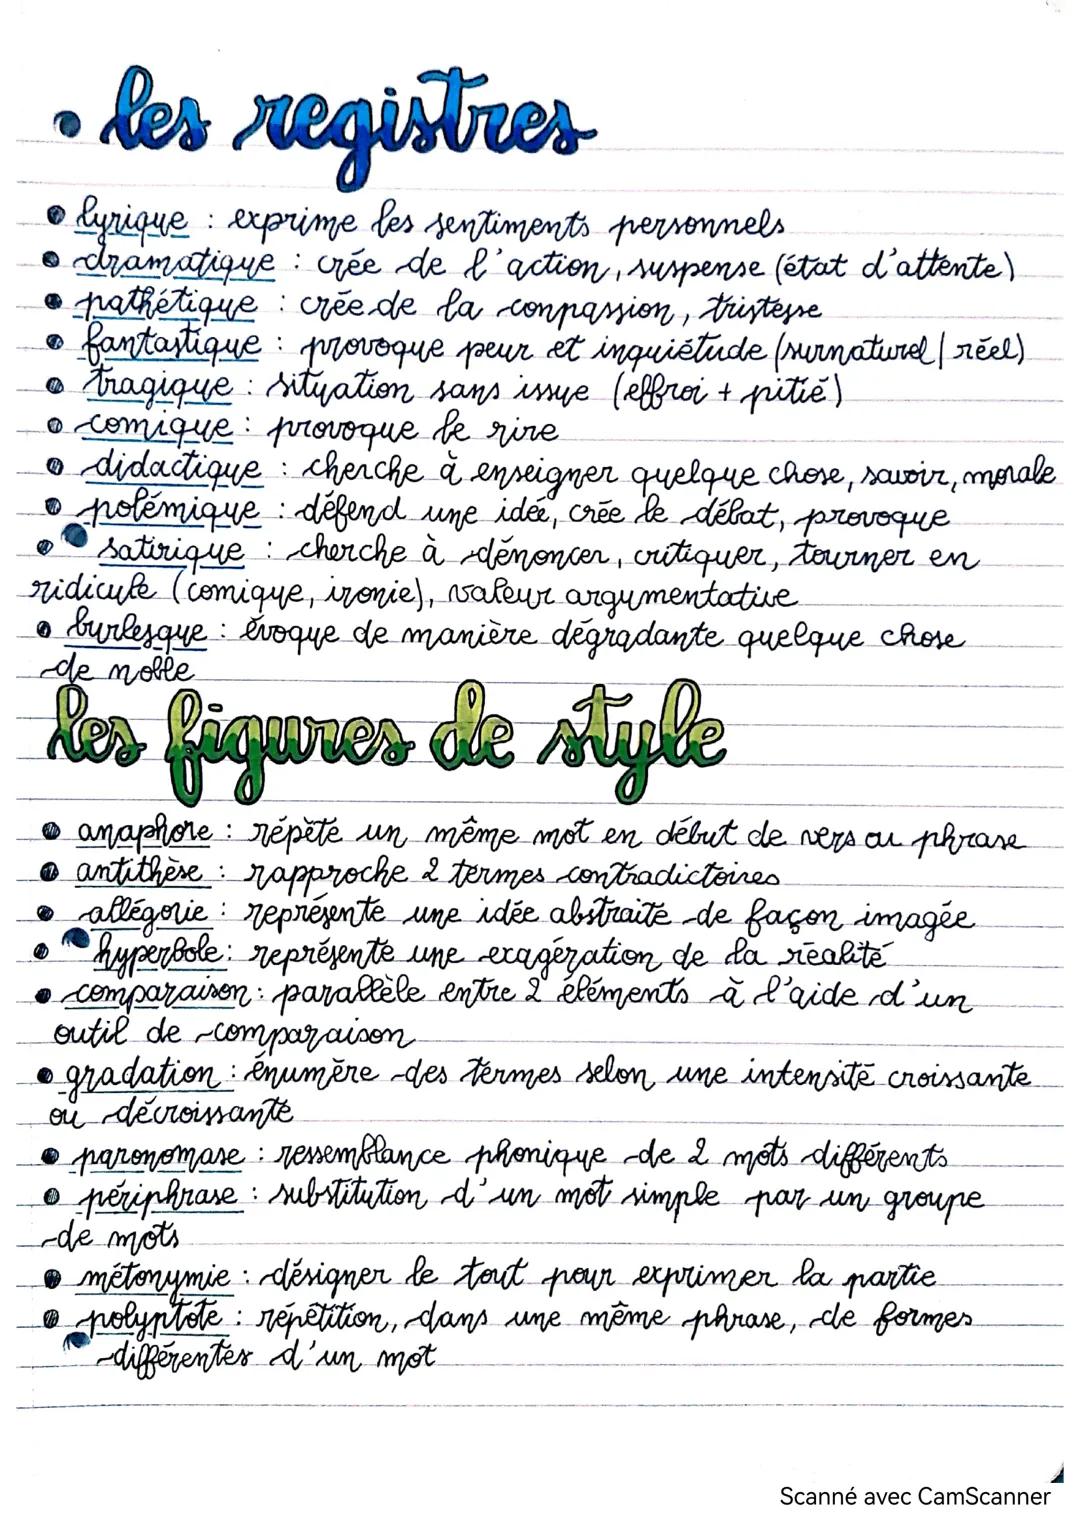 • les registres
• lyrique : exprime les sentiments personnels
• dramatique : crée de l'action, suspense (état d'attente)
• pathétique : crée de la conpassion, tristesse
• fantastique : provoque peur et inquiétude (surnaturel | réel)
• tragique : situation sans issue (effroi + pitié)
• comique : provoque le rire
• didactique : cherche à enseigner quelque chose, savoir, morale
• polémique : défend une idée, crée le débat, provoque
• satirique : cherche à dénoncer, critiquer, tourner en
ridicule (comique, ironie), valeur argumentative
• burlesque : évoque de manière dégradante quelque chose
de noble
les figures de style
• anaphore : répète un même mot en début de vers ou phrase
• antithèse : rapproche 2 termes contradictoires
• allégorie : représente une idée abstraite de façon imagée
• hyperbole : représente une exagération de la réalité
• comparaison : parallèle entre 2 éléments à l'aide d'un
outil de comparaison
• gradation : énumère des termes selon une intensité croissante
ou décroissante
• paronomase : ressemblance phonique de 2 mots différents
• périphrase : substitution d'un mot simple par un groupe
de mots
• métonymie : désigner le tout pour exprimer la partie
• polyptote : répétition, dans une même phrase, de formes
différentes d'un mot
Scanné avec CamScanner